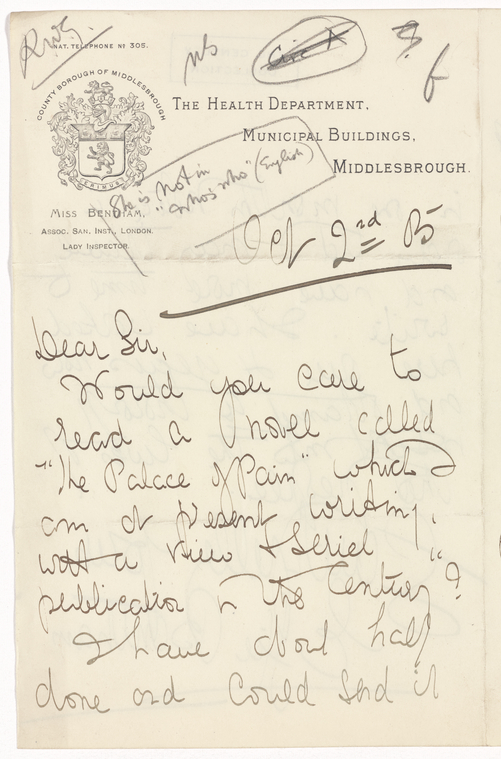 NAT. TELEPHONE Nº 305.
COUNTY BOROUGH OF MIDDLESBROUGH
ERIMUS
THE HEALTH DEPARTMENT,
MUNICIPAL BUILDINGS,
MIDDLESBROUGH.
She is not in
"who's who" (English)
MISS BENTHAM,
ASSOC. SAN. INST., LONDON.
LADY INSPECTOR.
Oct 2nd 05
Dear Sir,
Would you care to
read a novel called
"The Palace of Pain" which I
am at present writing,
with a view to serial
publication in "The Century"?
I have about half
done and could send it